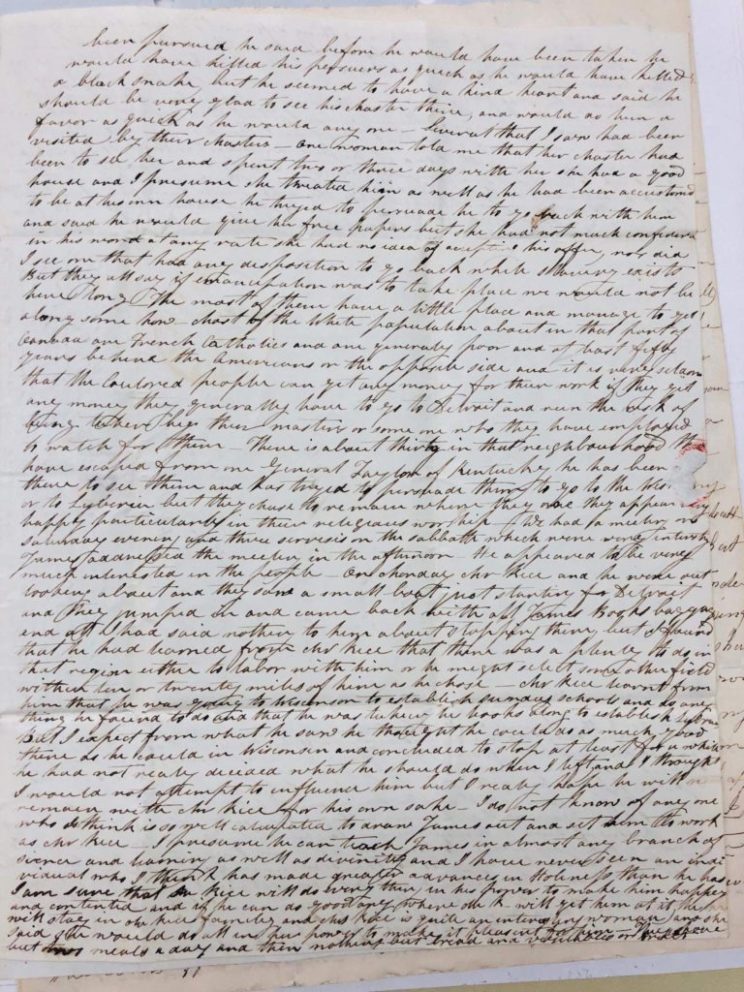 been pursued he said before he would have been taken he
would have killed his persuers as quick as he would have killed
a black snake, but he seemed to have a kind heart and said he
should be very glad to see his Master there, and would do him a
favor as quick as he would any one – Several that I saw had been
visited by their Masters – one woman told me that her Master had
been to see her and spent two or three days with her she had a good
house and I presume she treated him as well as he had been accustomed
to be at his own house he tryed to persuade he to go back with him
and said he would give her free papers but she had not much confidence
in his word at any rate she had no idea of accepting his offer, nor did
I see one that had any desposition to go back while slavery exists
But they all say if emancipation was to take place we would not be
here long The most of them have a little place and manage to get
along some how Most of the White population about in that part of
Canada are French Catholics and are generally poor and at least fifty
years behind the Americans on the opposite side and it is very seldom
that the Coulored people can get any money for their work if they get
any money they generally have to go to Detroit and run the risk of
being taken by their masters or some one who they have employed
to watch for them – There is about thirty in that neighbourhood that
have escaped from one General Taylor of Kentucky he has been
there to see them and has tryed to persuade them to go to the
or to Lyberia but they chose to remain where they are they appear very
happy particularly in their religious worship – We had a meeting on
Saturday evening and three servises on the sabbath which were very
James addressed the meeting in the afternoon He appeared to be very
much interested in the people – On Monday Mr Rice and he were out
looking about and they saw a small boat just starting for Detroit
and they jumped in and came back with all James Books baggage
and all I had said nothing to him about stopping there but I found
that he had learned from Mr Rice that there was a plenty to do in
that region either to labor with him or he might select some other field
within ten or twenty miles of him as he chose – Mr Rice learnt from
him that he was going to Wisconson to establish sunday schools and do any
thing he found to do and that he was taking he books along to establish
But I expect from what he saw he thought he could do as much good
there as he could in Wisconson and concluded to stop at least for a while
he had not realy decided what he should do when I left and I thought
I would not attempt to influence him but I realy hope he will
remain with Mr Rice for his own sake – I do not know of any one
who I think is so well calculated to draw James out and set him to work
as Mr Rice – I presume he can teach James in almost any branch of
sience and learning as well as divinity and I have never seen an indi
vidual who I think has made greater advances in Holiness than he has
I am sure that Mr Rice will do every thing in his power to make him happy
and contented and if he can do good any where Mr R will get him at it
will stay in Mr Rice family and Mrs Rice is quite an woman and she
said she would do all in her power to make it pleasent for him – They have
but two meals a day and then nothing but bread and or